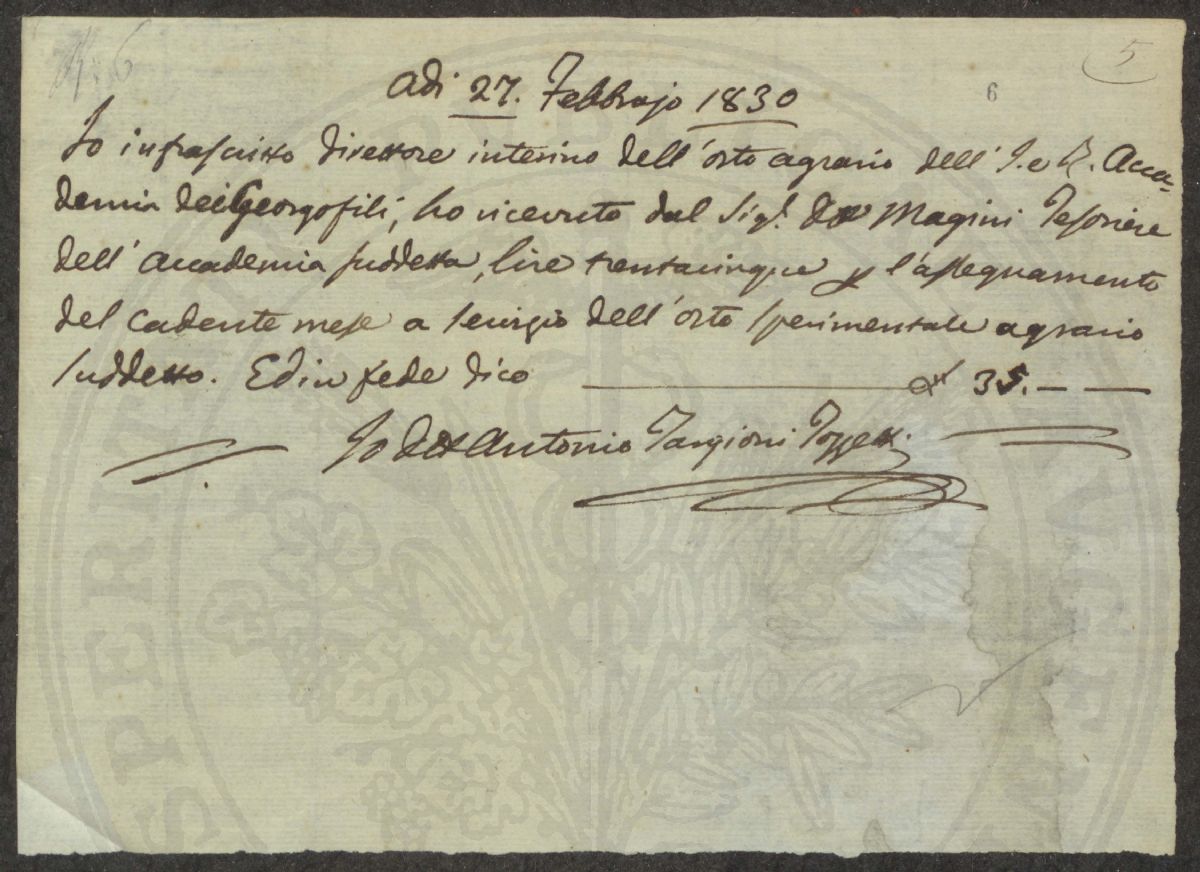 N. 6
5
6
Adi 27. Febbrajo 1830
Io infrascritto Direttore interino dell'orto agrario dell'I. e R. Acca-
demia dei Georgofili, ho ricevuto dal Sig.r Dott Magini Tesoriere
dell'Accademia suddetta, lire trentacinque p l'assegnamento
del cadente mese a servigio dell'orto sperimentale agrario
suddetto. Ed in fede dico 35.—
Io Dott Antonio Targioni Tozzetti
PROSPERITATI PUBLICAE AUGENDAE